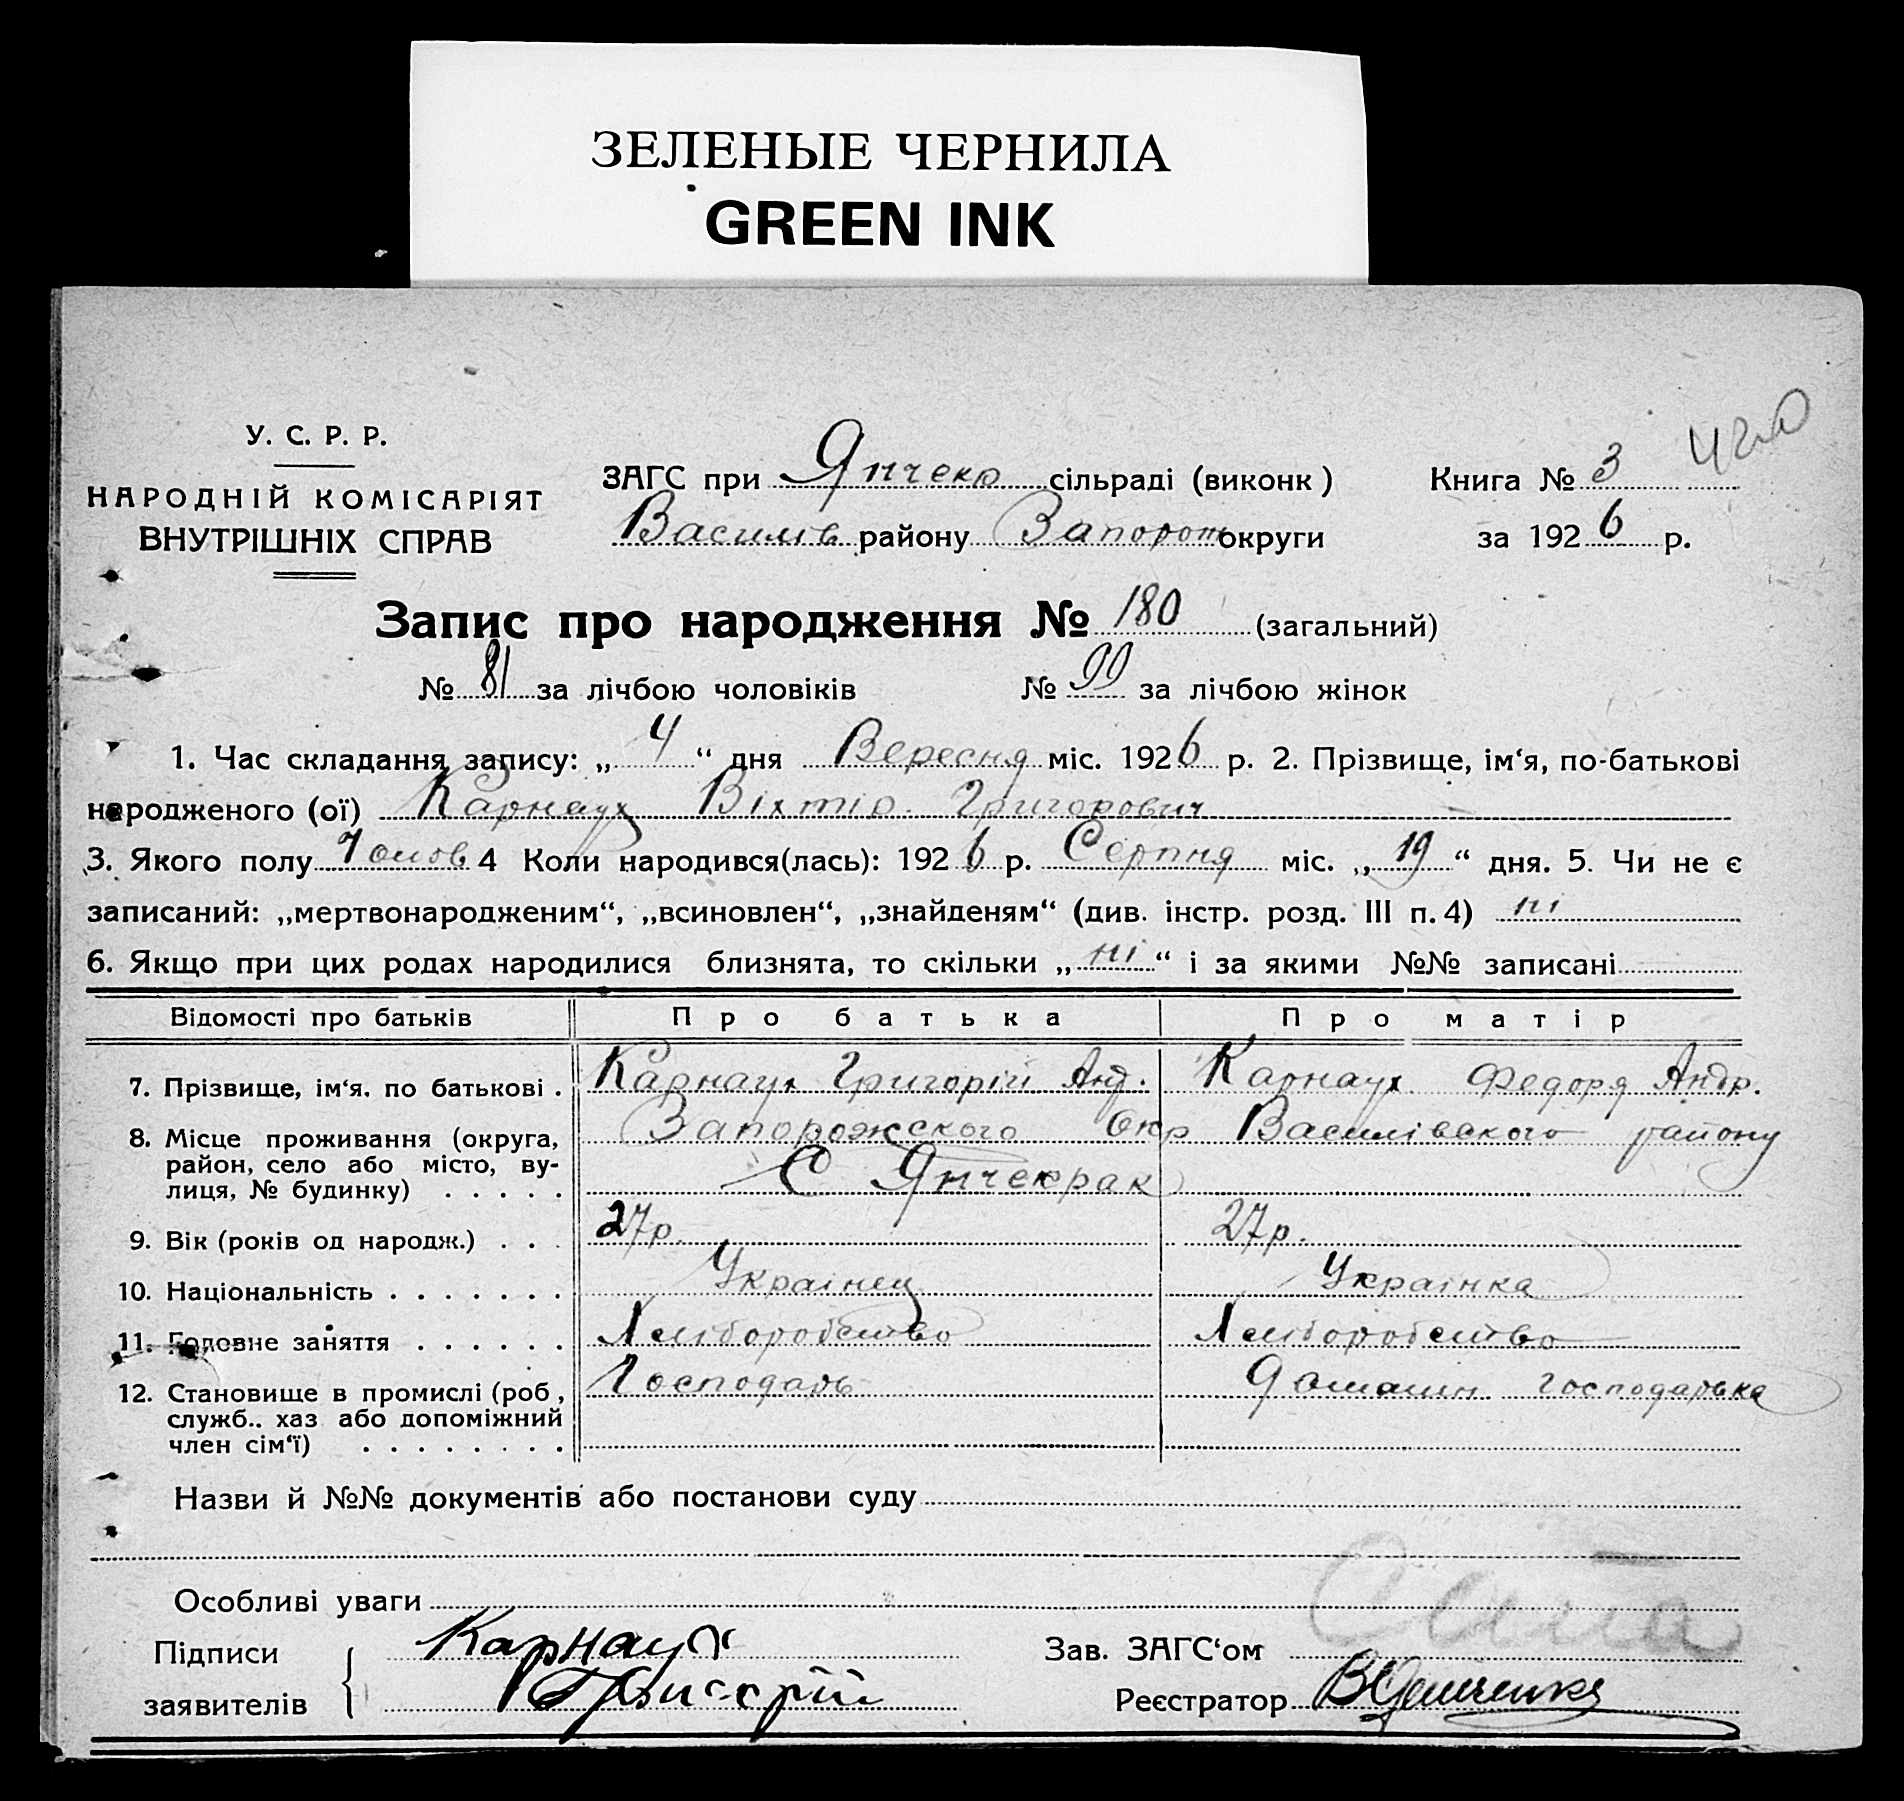 ЗЕЛЕНЫЕ ЧЕРНИЛА
GREEN INK
У. С. Р. Р.
НАРОДНІЙ КОМІСАРІЯТ
ВНУТРІШНІХ СПРАВ
ЗАГС при Янчекр сільраді (виконк)
Василів району Запорож округи
Книга № 3
за 1926 р.
Запис про народження № 180 (загальний)
№ 81 за лічбою чоловіків № 99 за лічбою жінок
1. Час складання запису: „4“ дня Вересня міс. 1926 р. 2. Прізвище, ім‘я, по-батькові
народженого (ої) Карнаух Віхтір Григорович
3. Якого полу Чолов. 4 Коли народився(лась): 1926 р. Серпня міс. „19“ дня. 5. Чи не є
записаний: „мертвонародженим“, „всиновлен“, „знайденям“ (див. інстр. розд. III п. 4) ні
6. Якщо при цих родах народилися близнята, то скільки „ні“ і за якими №№ записані
Відомості про батьків Про батька Про матір
7. Прізвище, ім‘я, по батькові . Карнаух Григорій Анд. Карнаух Федоря Андр.
8. Місце проживання (округа, Запорожского Окр Василівского району
район, село або місто, ву- С Янчекрак
лиця, № будинку) . . . . .
9. Вік (років од народж.) . . . 27р. 27р.
10. Національність . . . . . . . Українец Українка
11. Головне заняття . . . . . . Хліборобство Хліборобство
12. Становище в промислі (роб, Господарь Домашн господарька
служб.. хаз або допоміжний
член сім‘ї) . . . . . . . .
Назви й №№ документів або постанови суду
Особливі уваги
Підписи Карнаух Зав. ЗАГС‘ом
заявителів Григорій Реєстратор